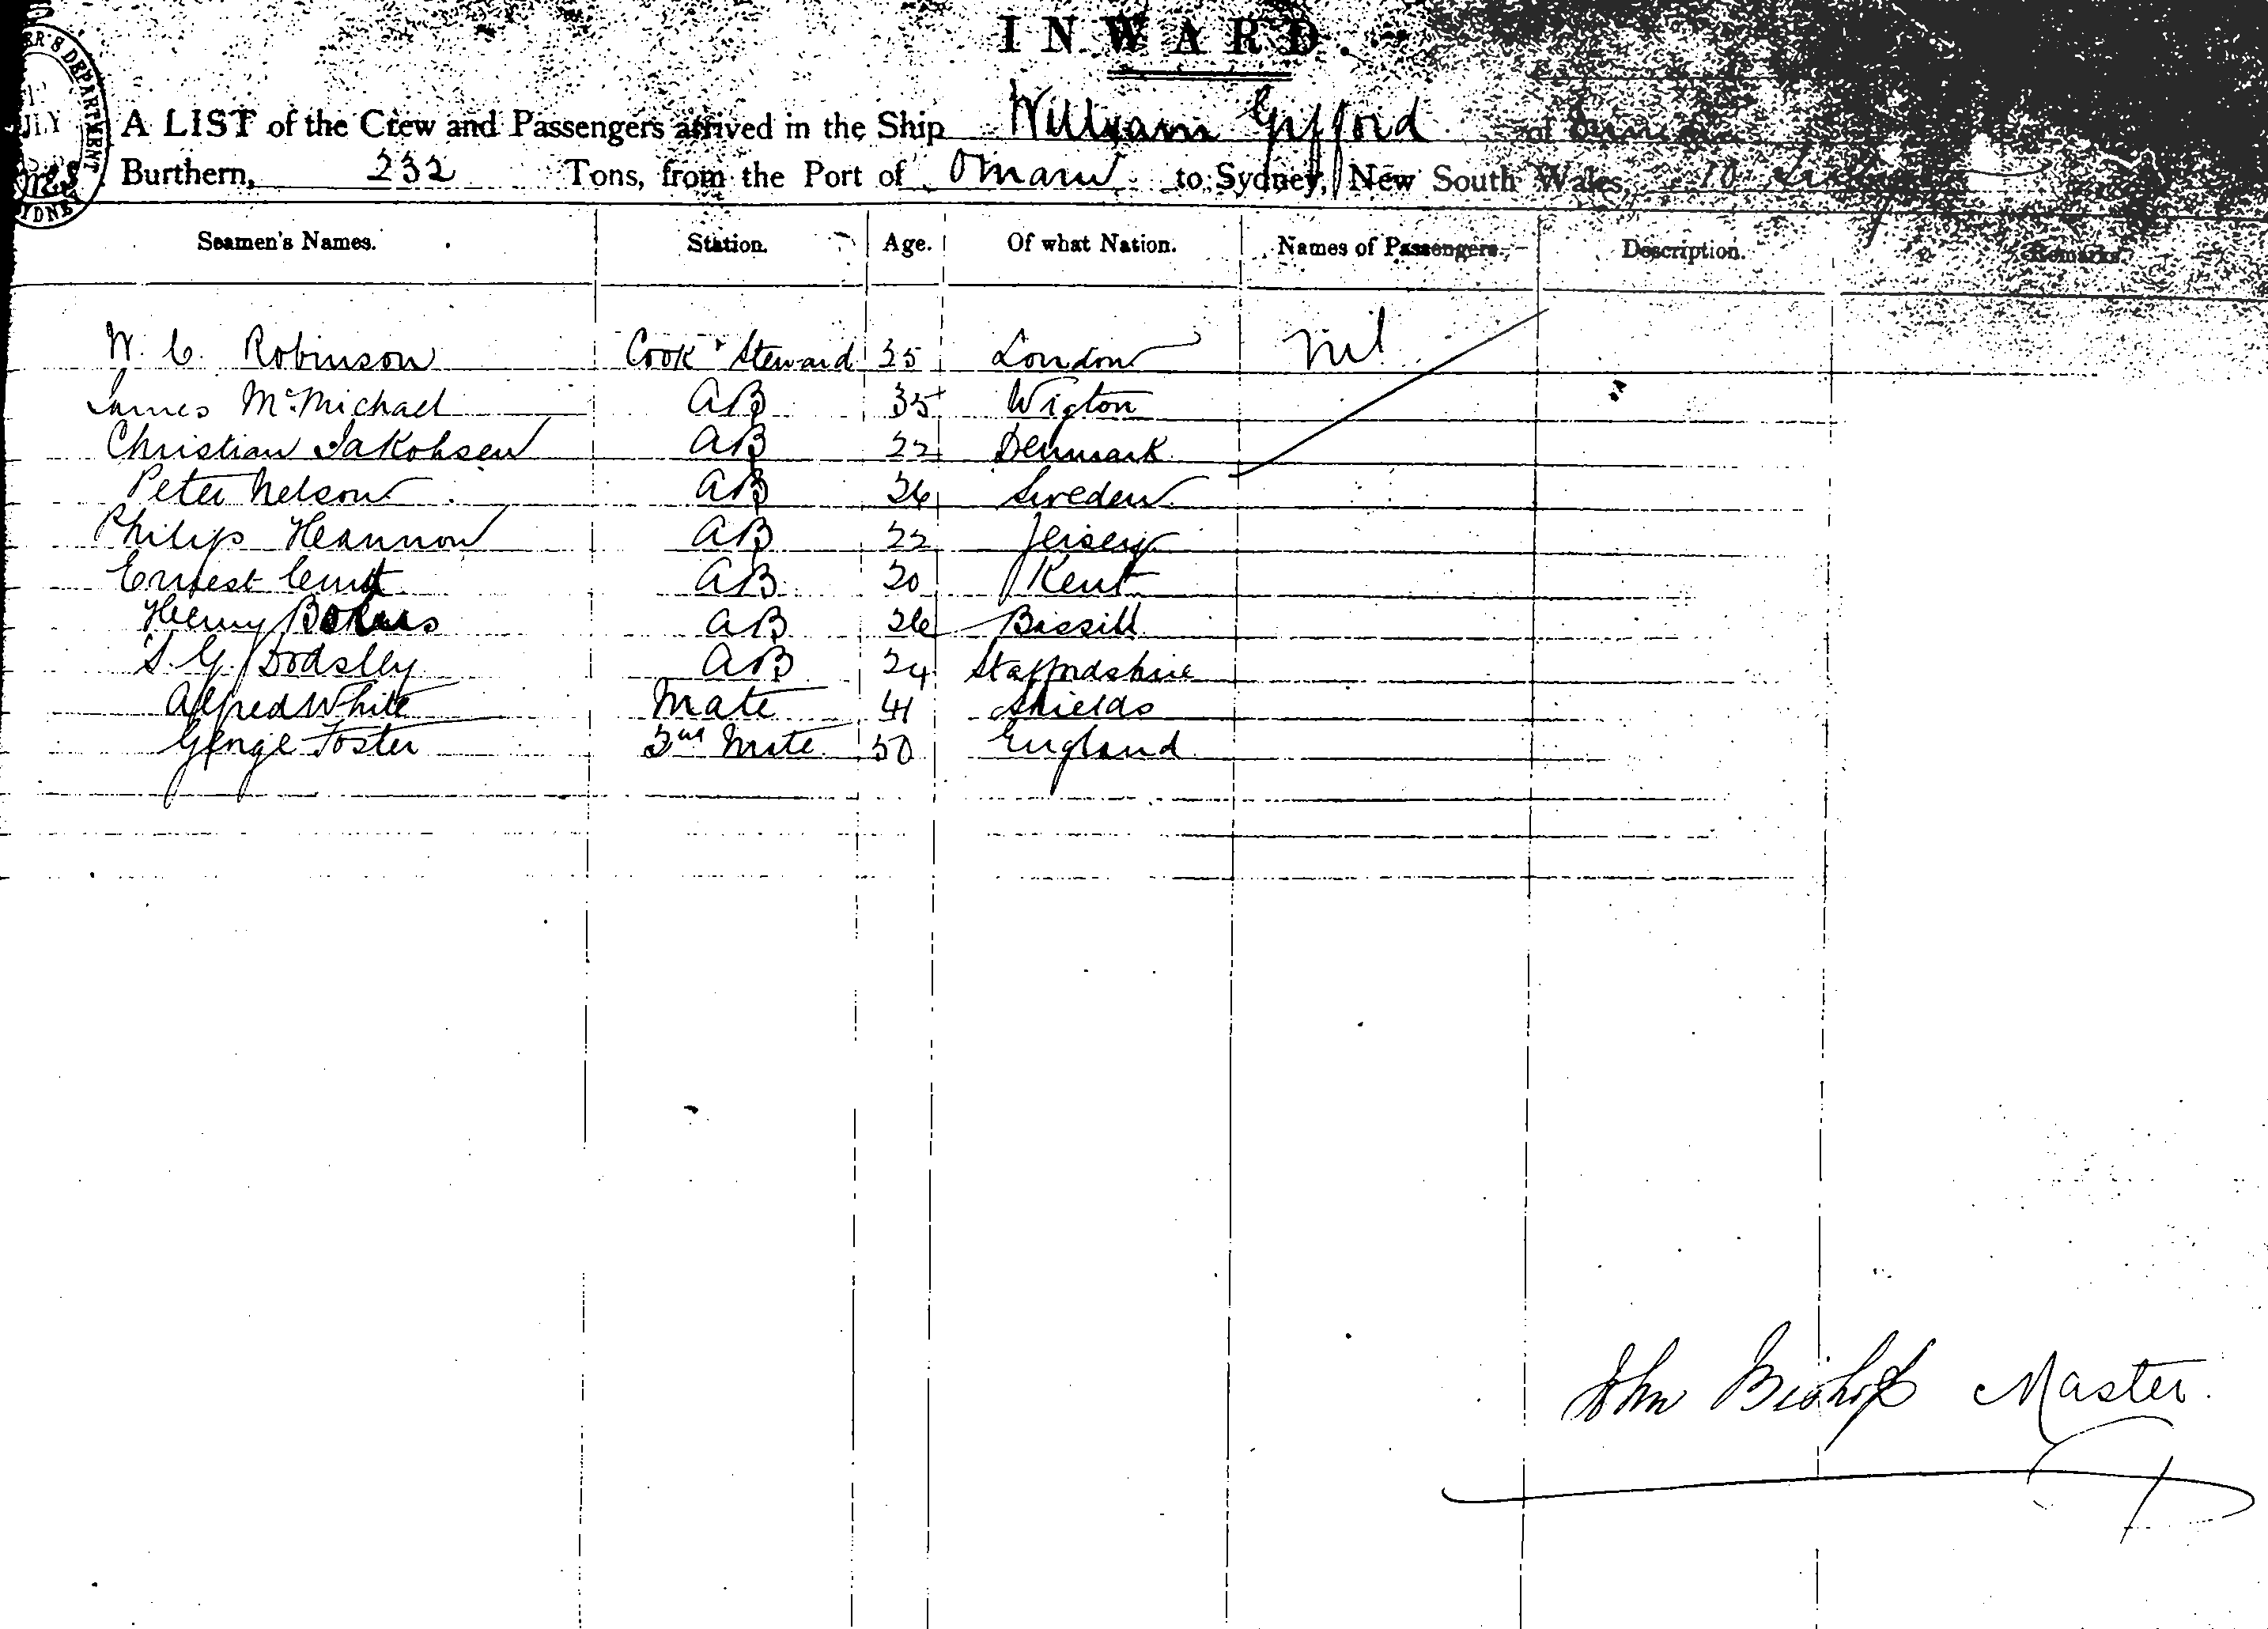 INWARD.
A LIST of the Crew and Passengers arrived in the Ship William Gifford of
Burthern, 232 Tons, from the Port of Omaru to Sydney, New South Wales, 10
Seamen's Names. Station. Age. Of what Nation. Names of Passengers. Description. Remarks.
W. C. Robinson Cook & Steward 25 London nil
James McMichael AB 35 Wigton
Christian Jakobsen AB 22 Denmark
Peter Nelson AB 26 Sweden
Philip Heannon AB 22 Jersey
Ernest AB 20 Kent
Henry AB 26
S. G. Dodsley AB 24 Staffordshire
Alfred White Mate 41 Shields
George Foster 2nd Mate 50 England
John Bishop Master.
DEPARTMENT
JLY
SYDNEY